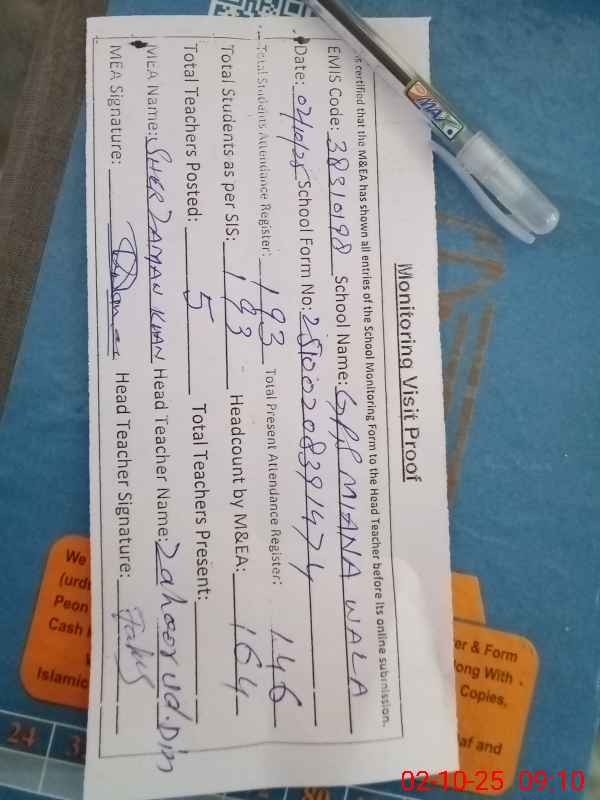 Monitoring Visit Proof
is certified that the M&EA has shown all entries of the School Monitoring Form to the Head Teacher before its online submission.
EMIS Code: 38310198 School Name: GPS MIANA WALA
Date: 02/10/25 School Form No: 25100208391474
Total Students Attendance Register: 193 Total Present Attendance Register: 146
Total Students as per SIS: 193 Headcount by M&EA: 164
Total Teachers Posted: 5 Total Teachers Present:
MEA Name: SHER ZAMAN KHAN Head Teacher Name: Zahoor ud.Din
MEA Signature: Head Teacher Signature:
DMAX
We
(urdu
Peon
Cash
Islamic
er & Form
long With
Copies,
af and
24
80
02-10-25 09:10